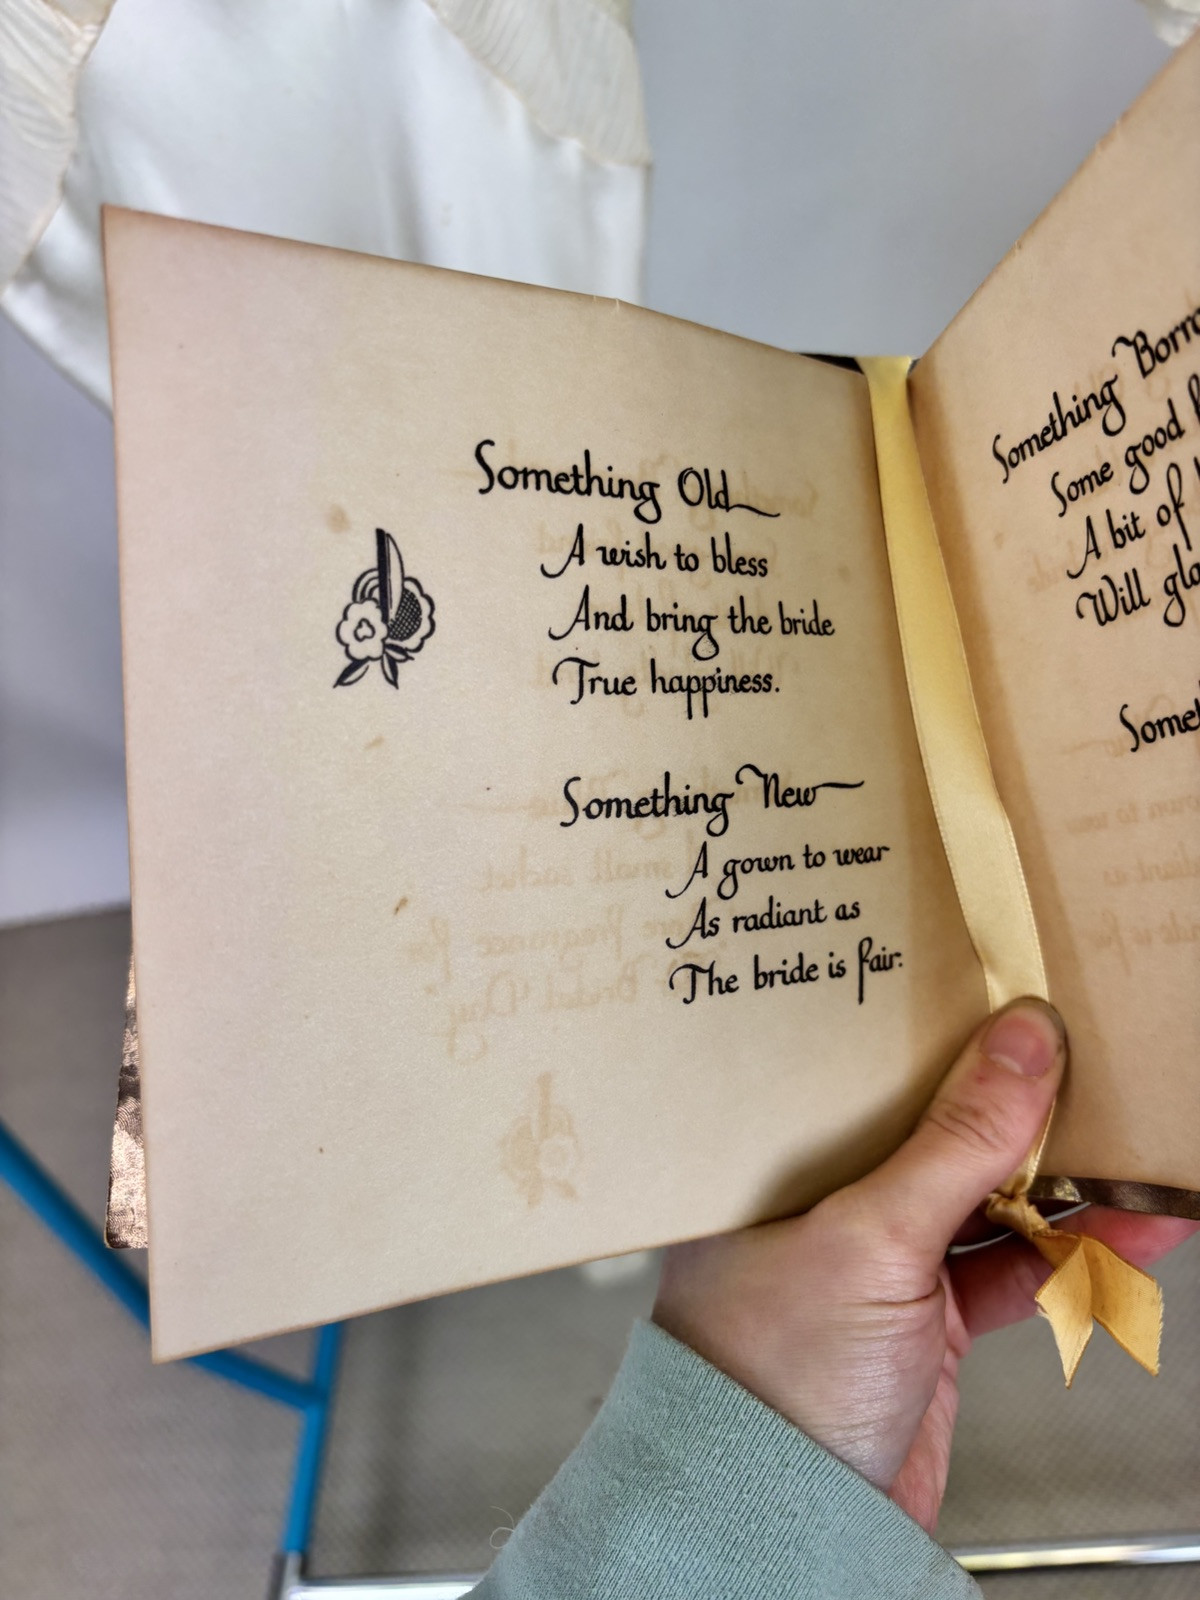 Something Old
A wish to bless
And bring the bride
True happiness.
Something New
A gown to wear
As radiant as
The bride is fair.
Something
Some good
A bit of
Will